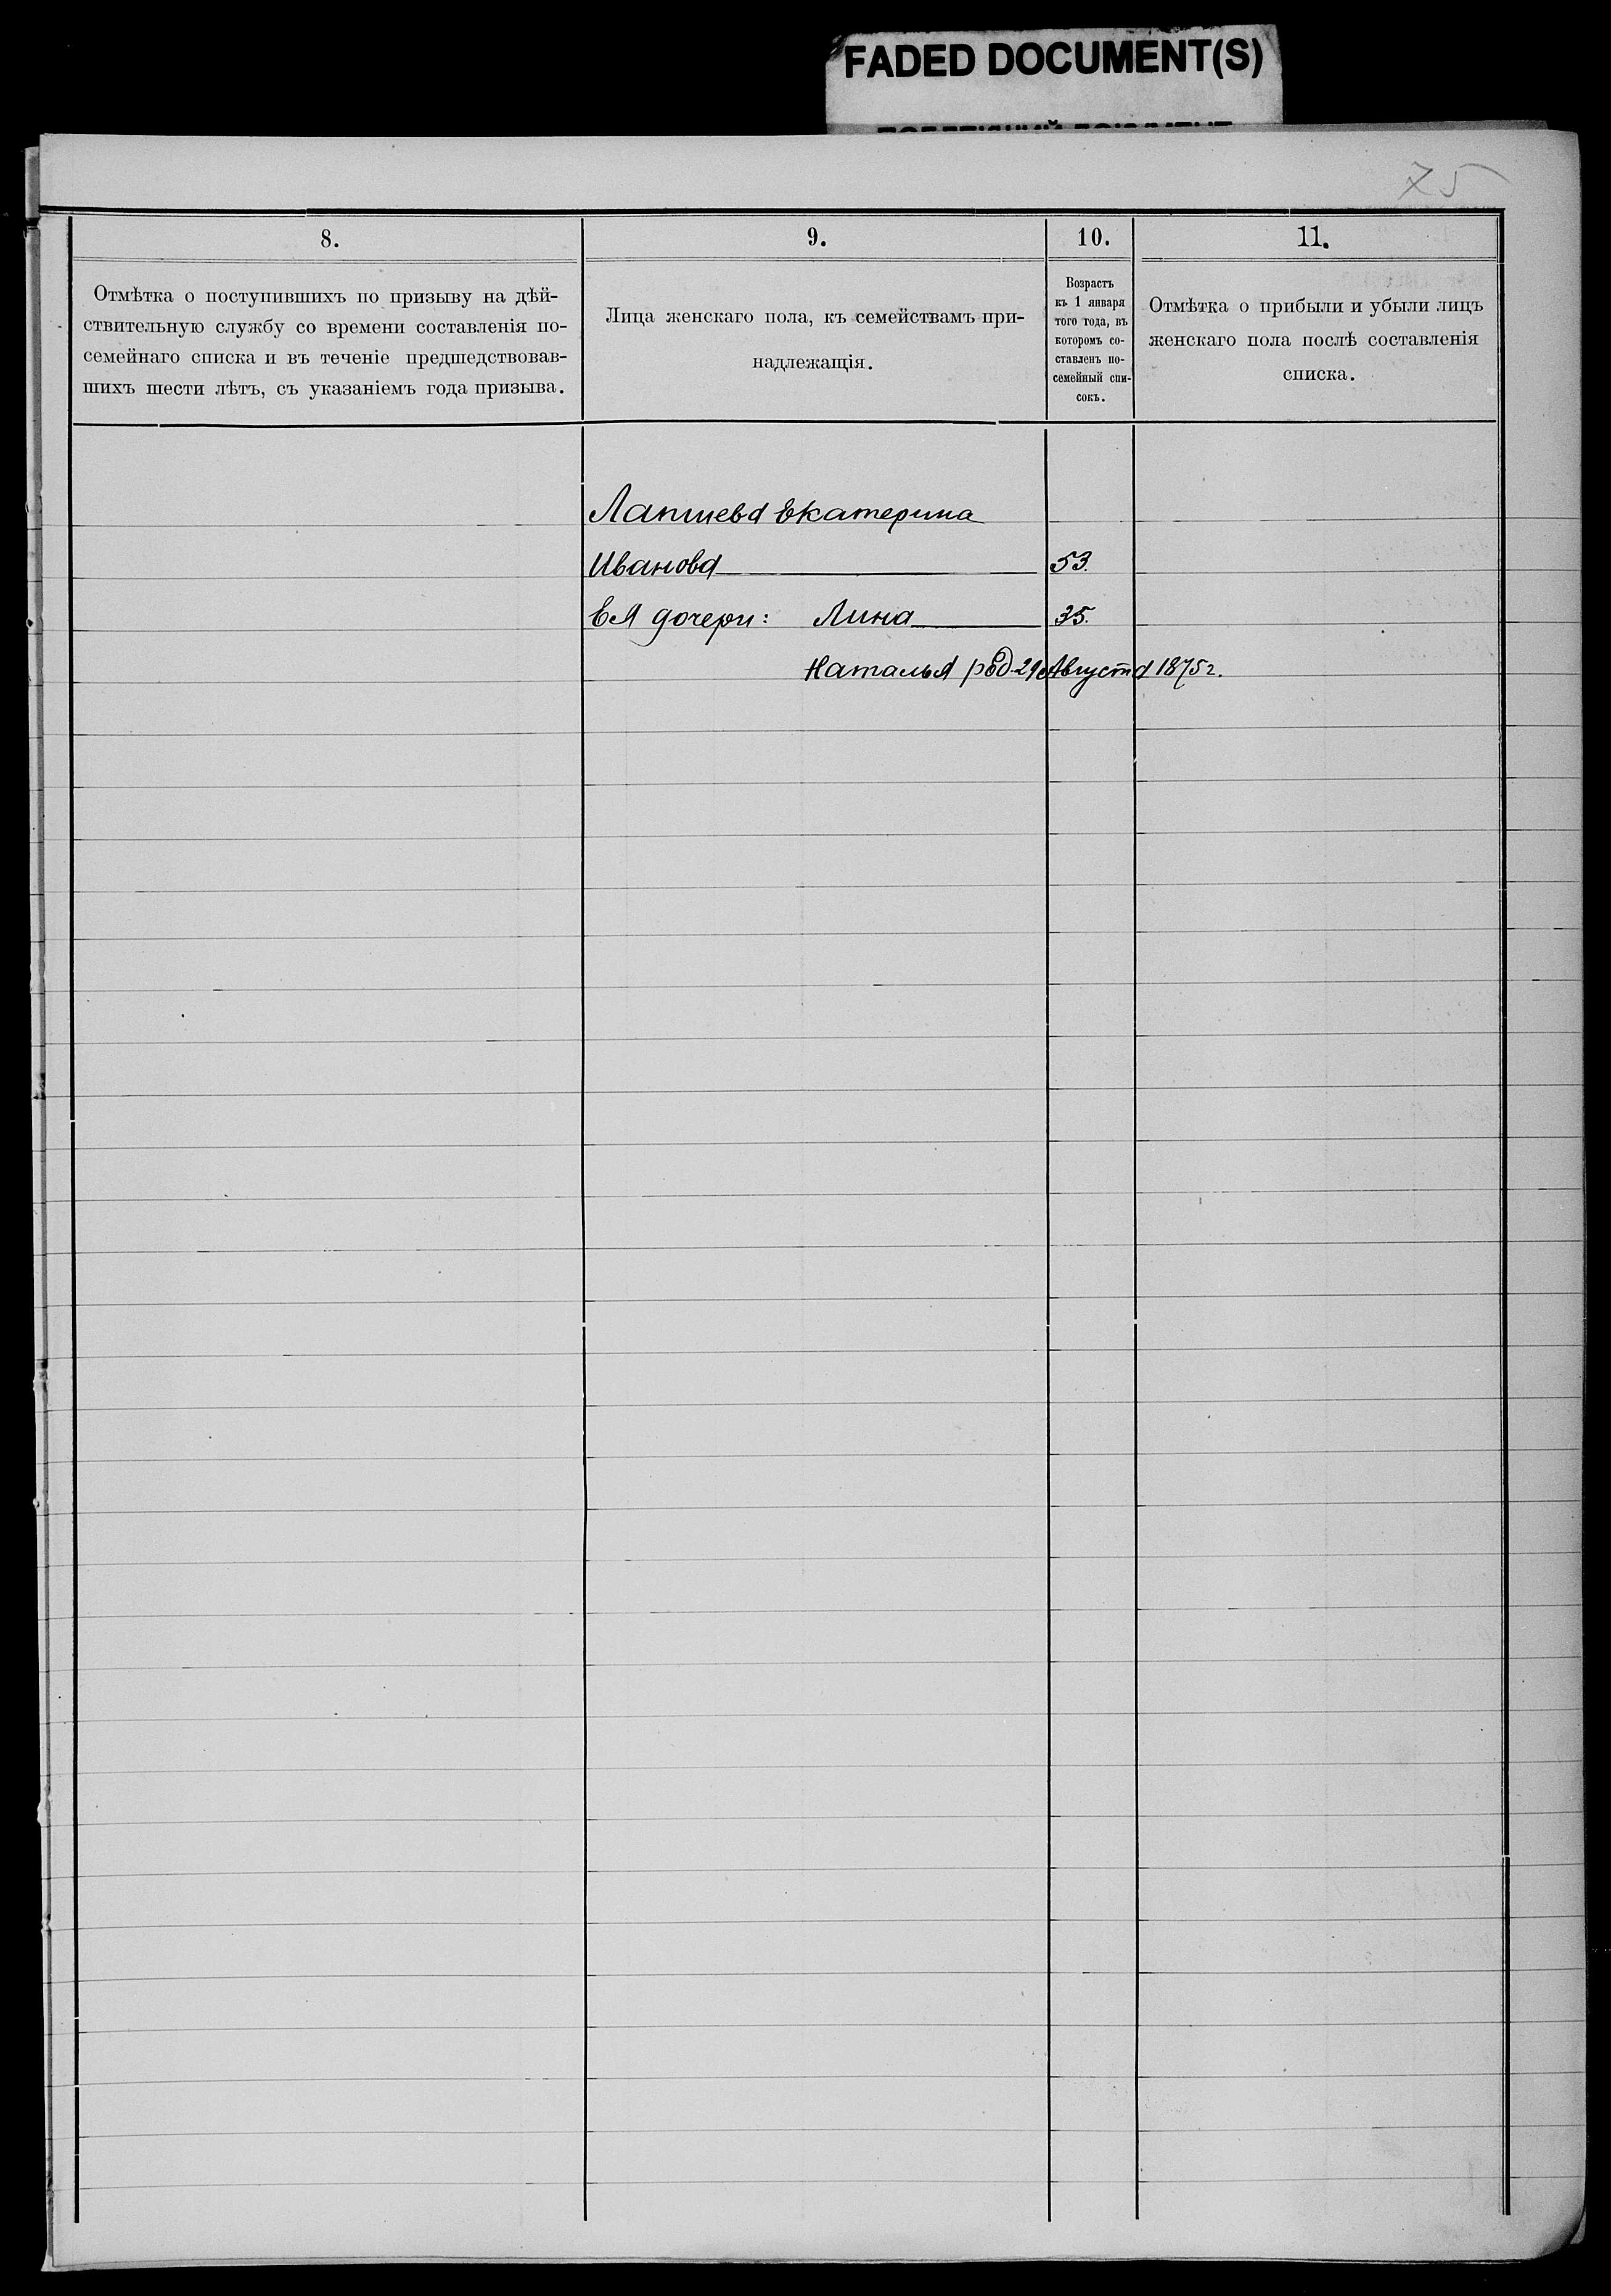 FADED DOCUMENT(S)
75
8.
9.
10.
11.
Отмѣтка о поступившихъ по призыву на дѣй-
ствительную службу со времени составленія по-
семейнаго списка и въ теченіе предшедствовав-
шихъ шести лѣтъ, съ указаніемъ года призыва.
Лица женскаго пола, къ семействамъ при-
надлежащія.
Возрастъ
къ 1 января
того года, въ
которомъ со-
ставленъ по-
семейный спи-
сокъ.
Отмѣтка о прибыли и убыли лицъ
женскаго пола послѣ составленія
списка.
Лапшева Екатерина
Иванова 53.
Ея дочери: Лина 35.
Наталья род. 29 Августа 1875 г.